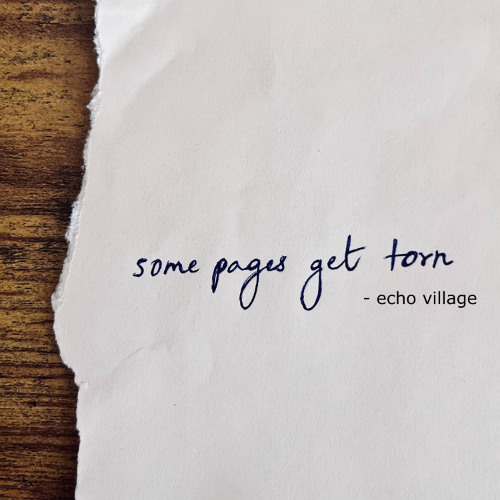 some pages get torn
- echo village